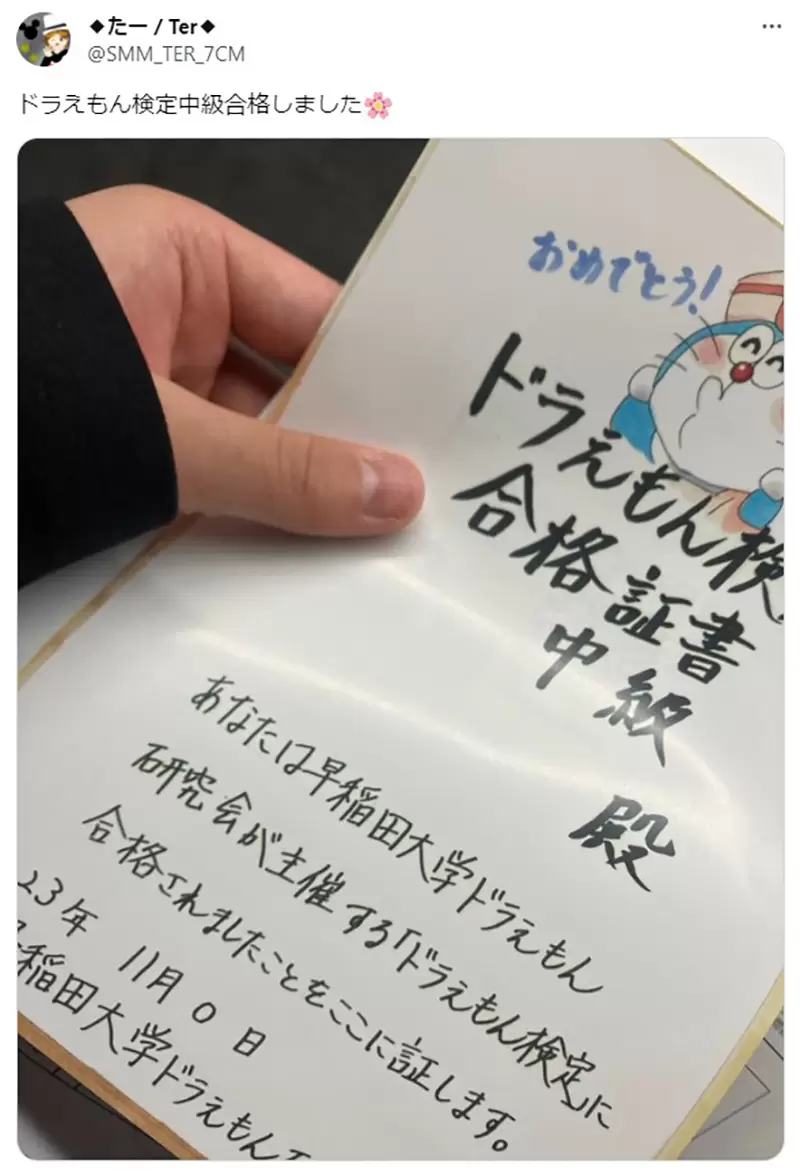 ◆たー / Ter◆
@SMM_TER_7CM
ドラえもん検定中級合格しました🌸
おめでとう!
ドラえもん検
合格証書
中級
殿
あなたは早稲田大学ドラえもん
研究会が主催する「ドラえもん検定」に
合格されましたことをここに証します。
23年 11月 0日
稲田大学ドラえもん